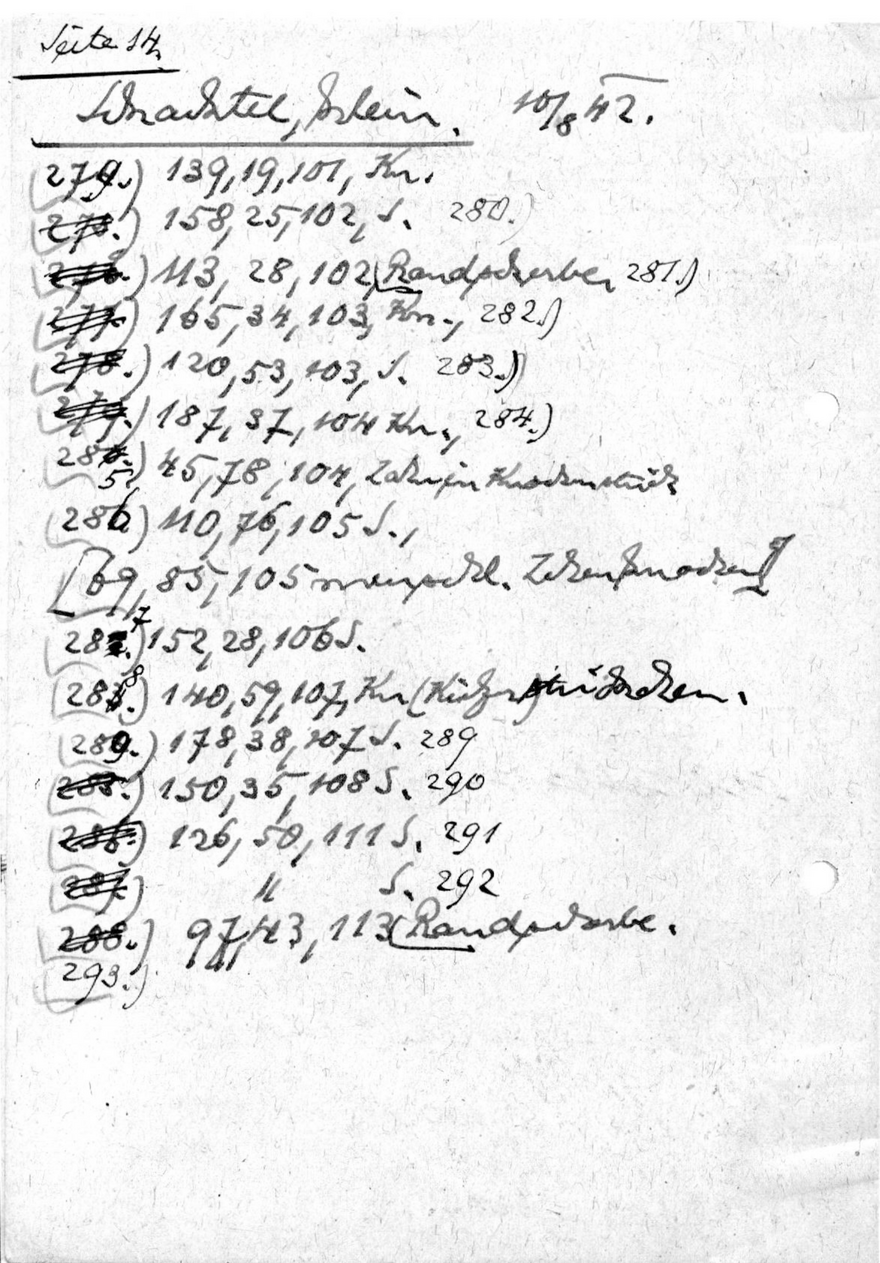 Seite 14.
Schachtel, klein. 10/8 42.
(279.) 139, 19, 101, Kn.
158, 25, 102, S. 280.)
113, 28, 102 (Randscherbe, 281.)
165, 34, 103, Kn., 282.)
(278.) 120, 53, 103, S. 283.)
187, 37, 104 Kn., 284.)
(285.) 45, 78, 104, Zahn in Knochenstück
(286) 110, 76, 105 S.,
[69, 85, 105 menschl. Zehenknochen]
(287.) 152, 28, 106 S.
(288.) 140, 59, 107, Kn (Kiefer) stückchen.
(289.) 178, 38, 107 S. 289
(285.) 150, 35, 108 S. 290
(286.) 126, 50, 111 S. 291
(287.) " S. 292
(288.) 97, 43, 113 (Randscherbe.
(293.)